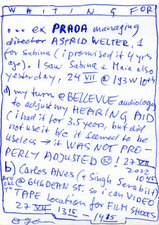 WAITING FOR
... ex PRADA managing
director ASTRID WELTER, 1
for Sabina (i promised it 4 yrs
ago). I saw Sabina & Haie also
yesterday, 24 VII @ 193 W 10th
d) my turn @ BELLEVUE audiology
to adjust my HEARING AID
(i had it for 3.5 years, but did
not use it b/c it seemed to be
useless → it WAS NOT PRO-
PERLY ADJUSTED! 27 VII
2022
b) Carlos Alves (+ Singh
@ so i can VIDEO
TAPE LOCATION for FILM SHOOTS
27 VII 1315 - 1415